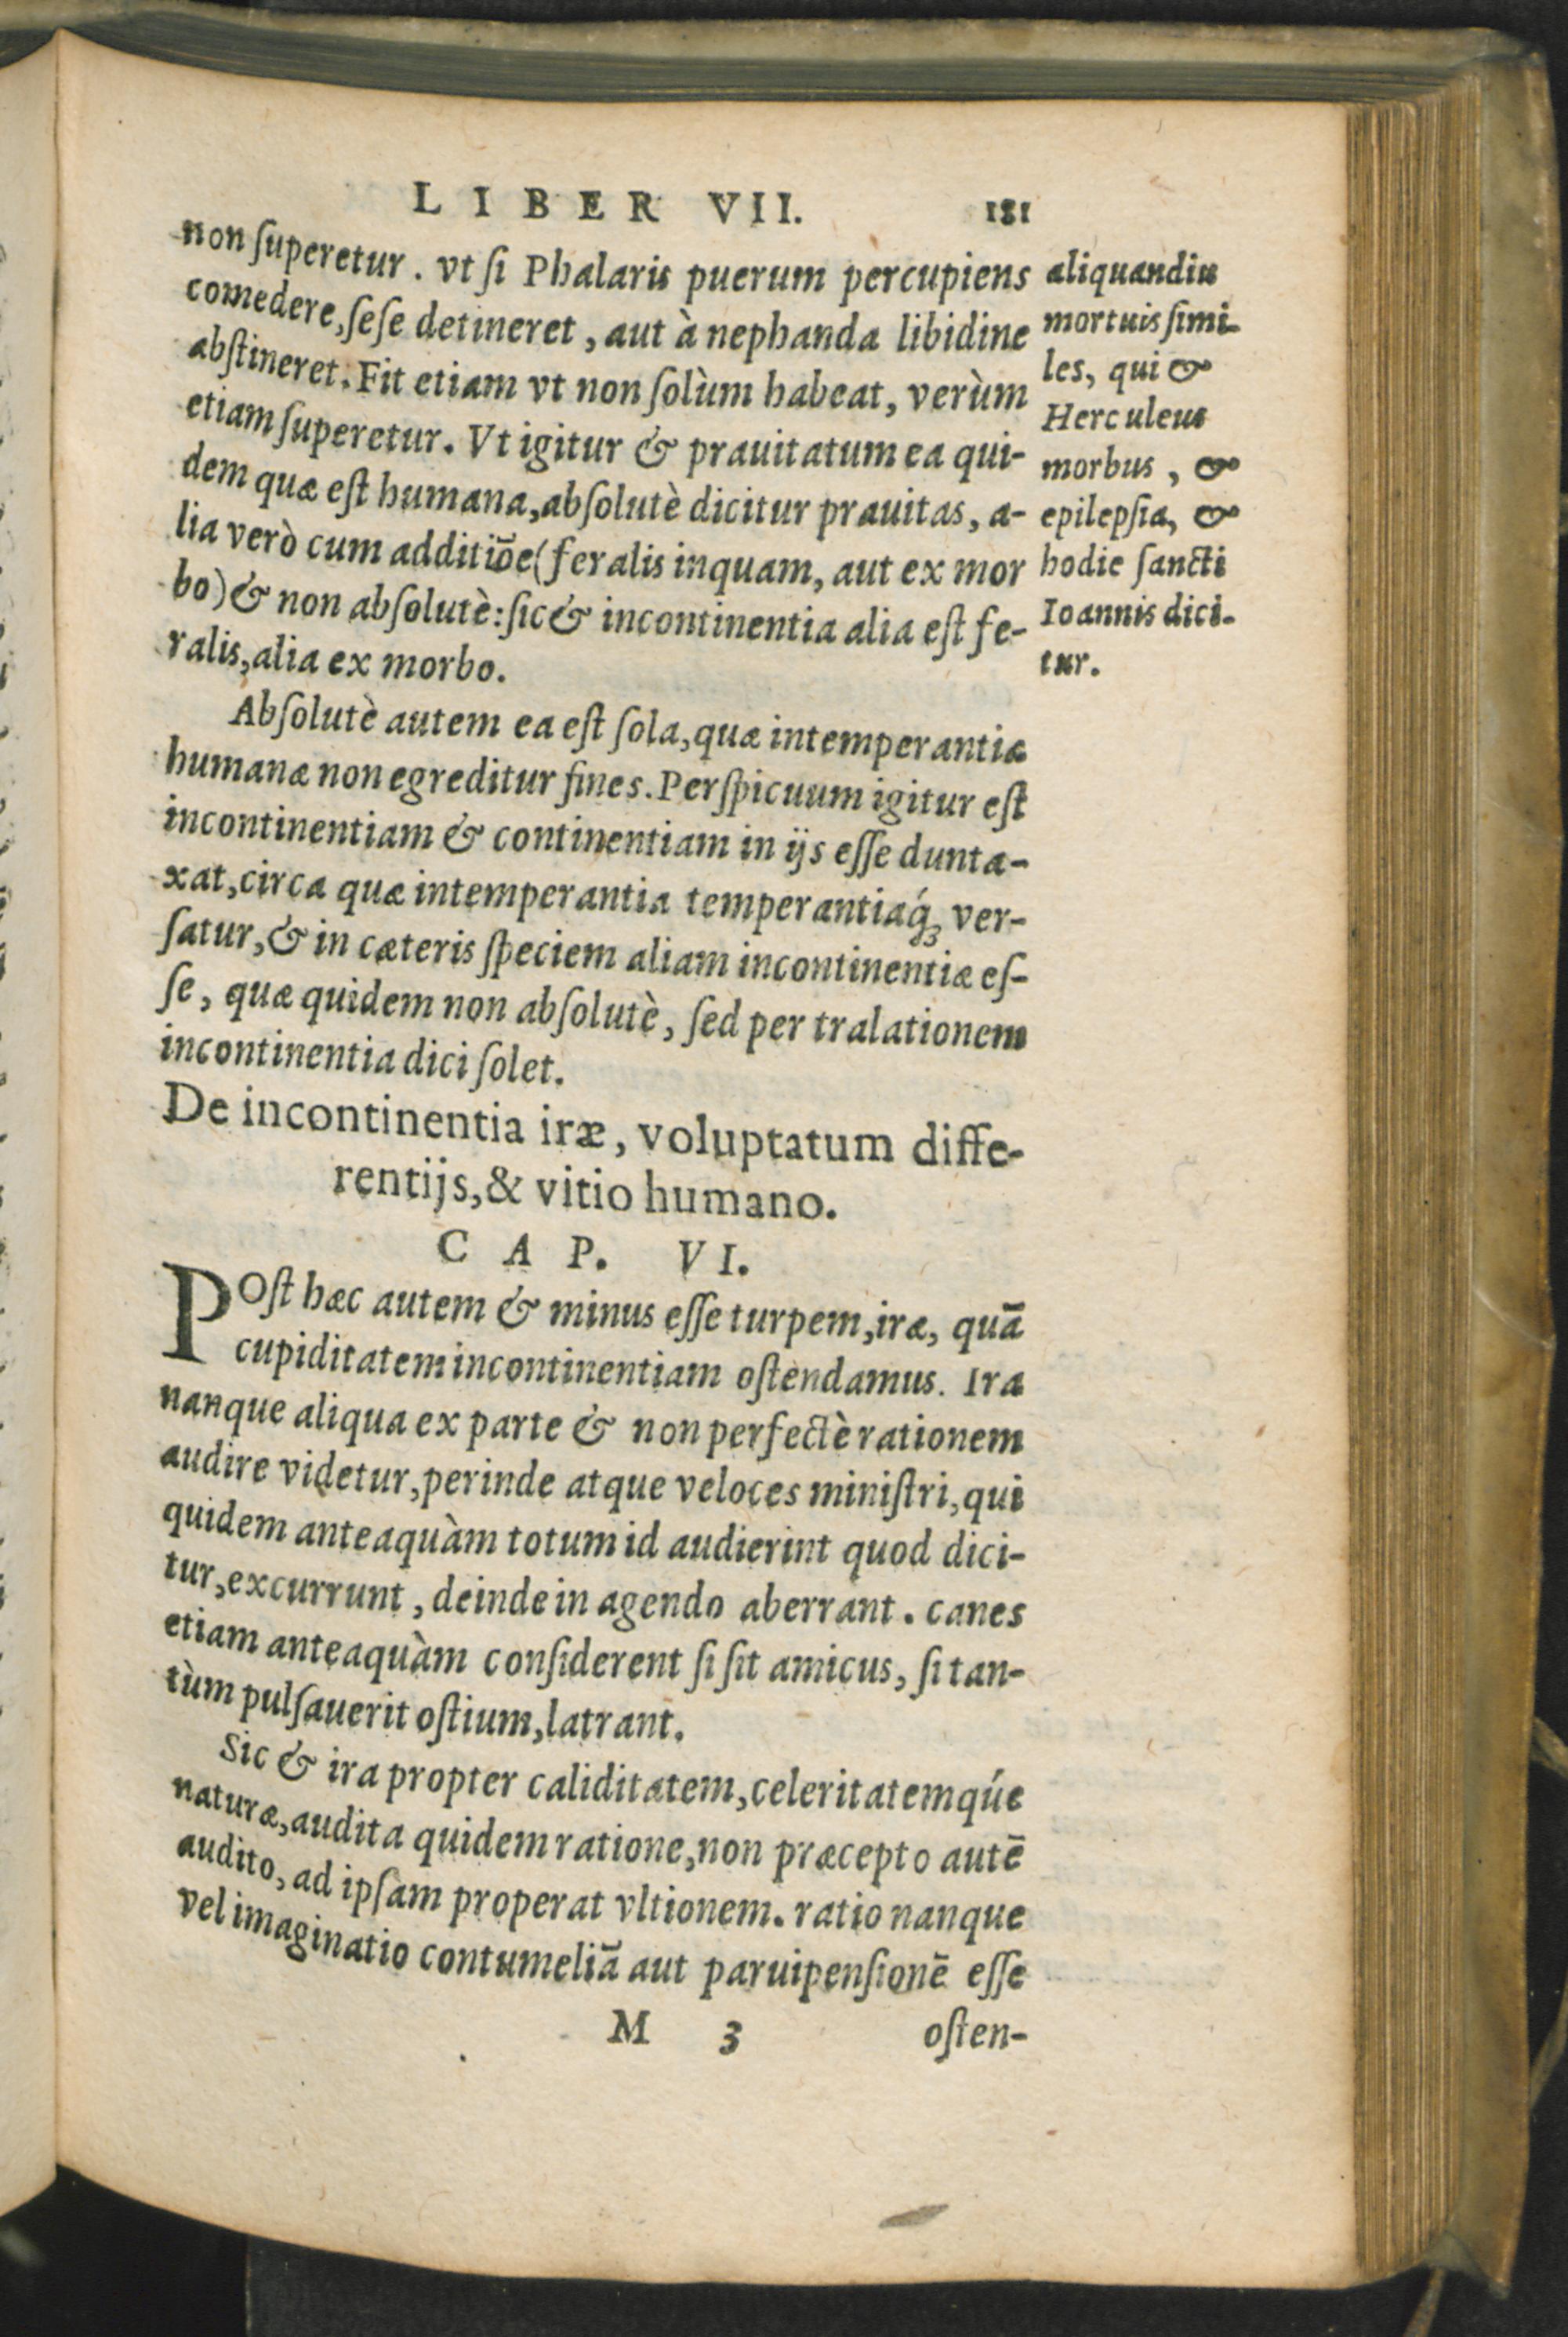 LIBER VII. 181
non ſuperetur. vt ſi Phalaris puerum percupiens
comedere, ſeſe detineret, aut à nephanda libidine
abſtineret. Fit etiam vt non ſolùm habeat, verùm
etiam ſuperetur. Vt igitur & prauitatum ea qui-
dem quæ eſt humana, abſolutè dicitur prauitas, a-
lia verò cum additiōe (feralis inquam, aut ex mor
bo) & non abſolutè: ſic & incontinentia alia eſt fe-
ralis, alia ex morbo.
aliquandiu
mortuis ſimi-
les, qui &
Herculeus
morbus, &
epilepſia, &
hodie ſancti
Ioannis dici-
tur.
Abſolutè autem ea eſt ſola, quæ intemperantiæ
humanæ non egreditur fines. Perſpicuum igitur eſt
incontinentiam & continentiam in ijs eſſe dunta-
xat, circa quæ intemperantia temperantiaq́; ver-
ſatur, & in cæteris ſpeciem aliam incontinentiæ eſ-
ſe, quæ quidem non abſolutè, ſed per tralationem
incontinentia dici ſolet.
De incontinentia iræ, voluptatum diffe-
rentijs, & vitio humano.
CAP. VI.
POſt hæc autem & minus eſſe turpem, iræ, quā
cupiditatem incontinentiam oſtendamus. Ira
nanque aliqua ex parte & non perfectè rationem
audire videtur, perinde atque veloces miniſtri, qui
quidem anteaquàm totum id audierint quod dici-
tur, excurrunt, deinde in agendo aberrant. canes
etiam anteaquàm conſiderent ſi ſit amicus, ſi tan-
tùm pulſauerit oſtium, latrant.
Sic & ira propter caliditatem, celeritatemq́ue
naturæ, audita quidem ratione, non præcepto autē
audito, ad ipſam properat vltionem. ratio nanque
vel imaginatio contumeliā aut paruipenſionē eſſe
M 3 oſten-